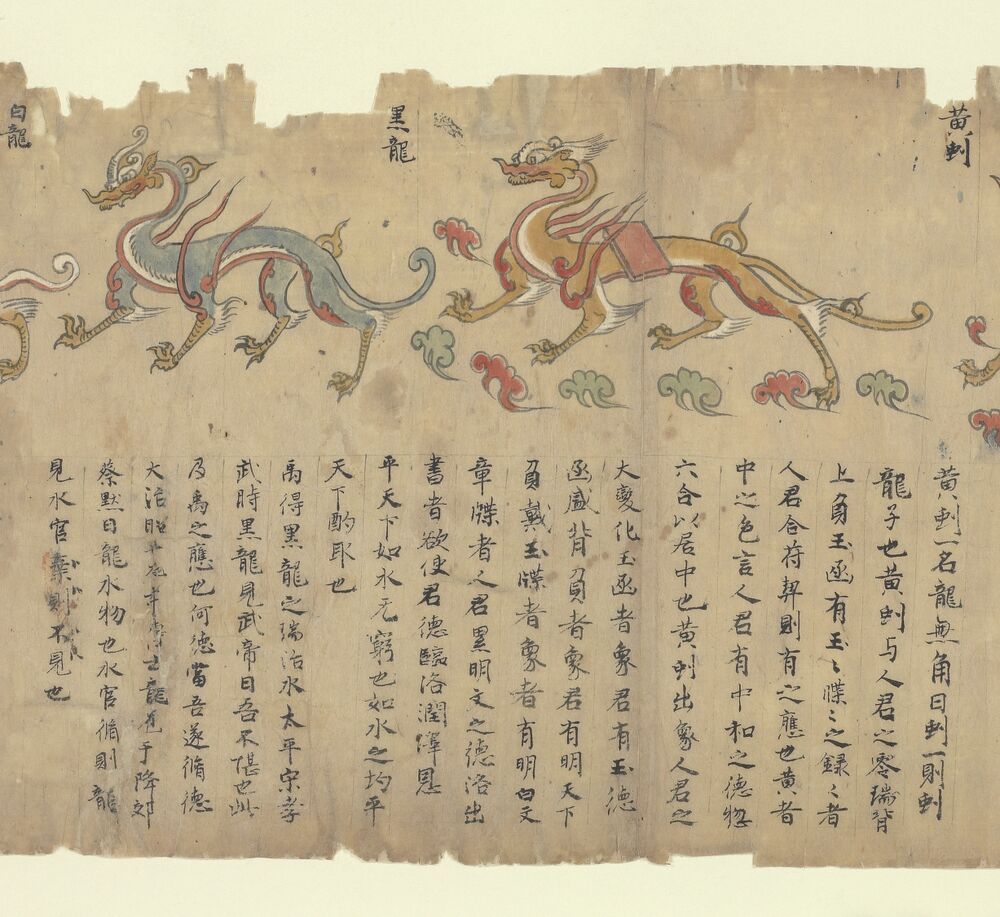 黄虬
黄虬一名龍無角曰虬一則虬
龍子也黄虬与人君之零瑞背
上負玉函有玉〻牒〻之録〻者
人君合符契則有之應也黄者
中之色言人君有中和之德惣
六合以居中也黄虬出象人君之
大變化玉函者象君有玉德
函盛背負者象君有明天下
負戴玉牒者象者有明白文
章牒者人君異明文之德洛出
書者欲使君德臨洛潤澤恩
平天下如水无窮也如水之均平
天下酌取也
黑龍
禹得黑龍之瑞治水太平宋孝
武時黑龍見武帝曰吾不堪也此
及禹之應也何德當吾遂脩德
大治昭 年 龍見于降郊
蔡默曰龍水物也水官脩則龍
見水官 則不見也
白龍